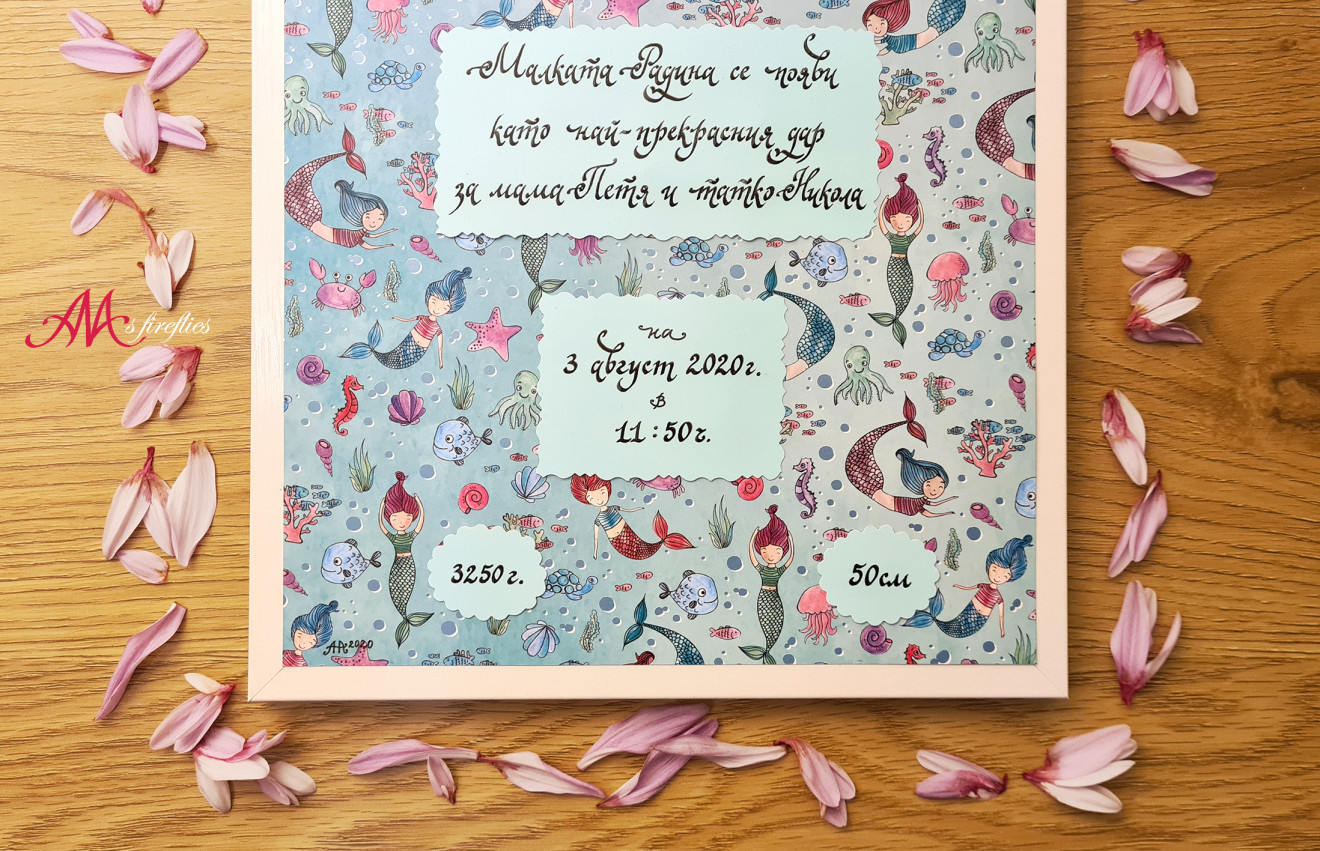 Малката Радина се появи
като най-прекрасния дар
за мама Петя и татко Никола
на
3 август 2020г.
в
11:50ч.
3250г.
50см
AA 2020
AA's fireflies